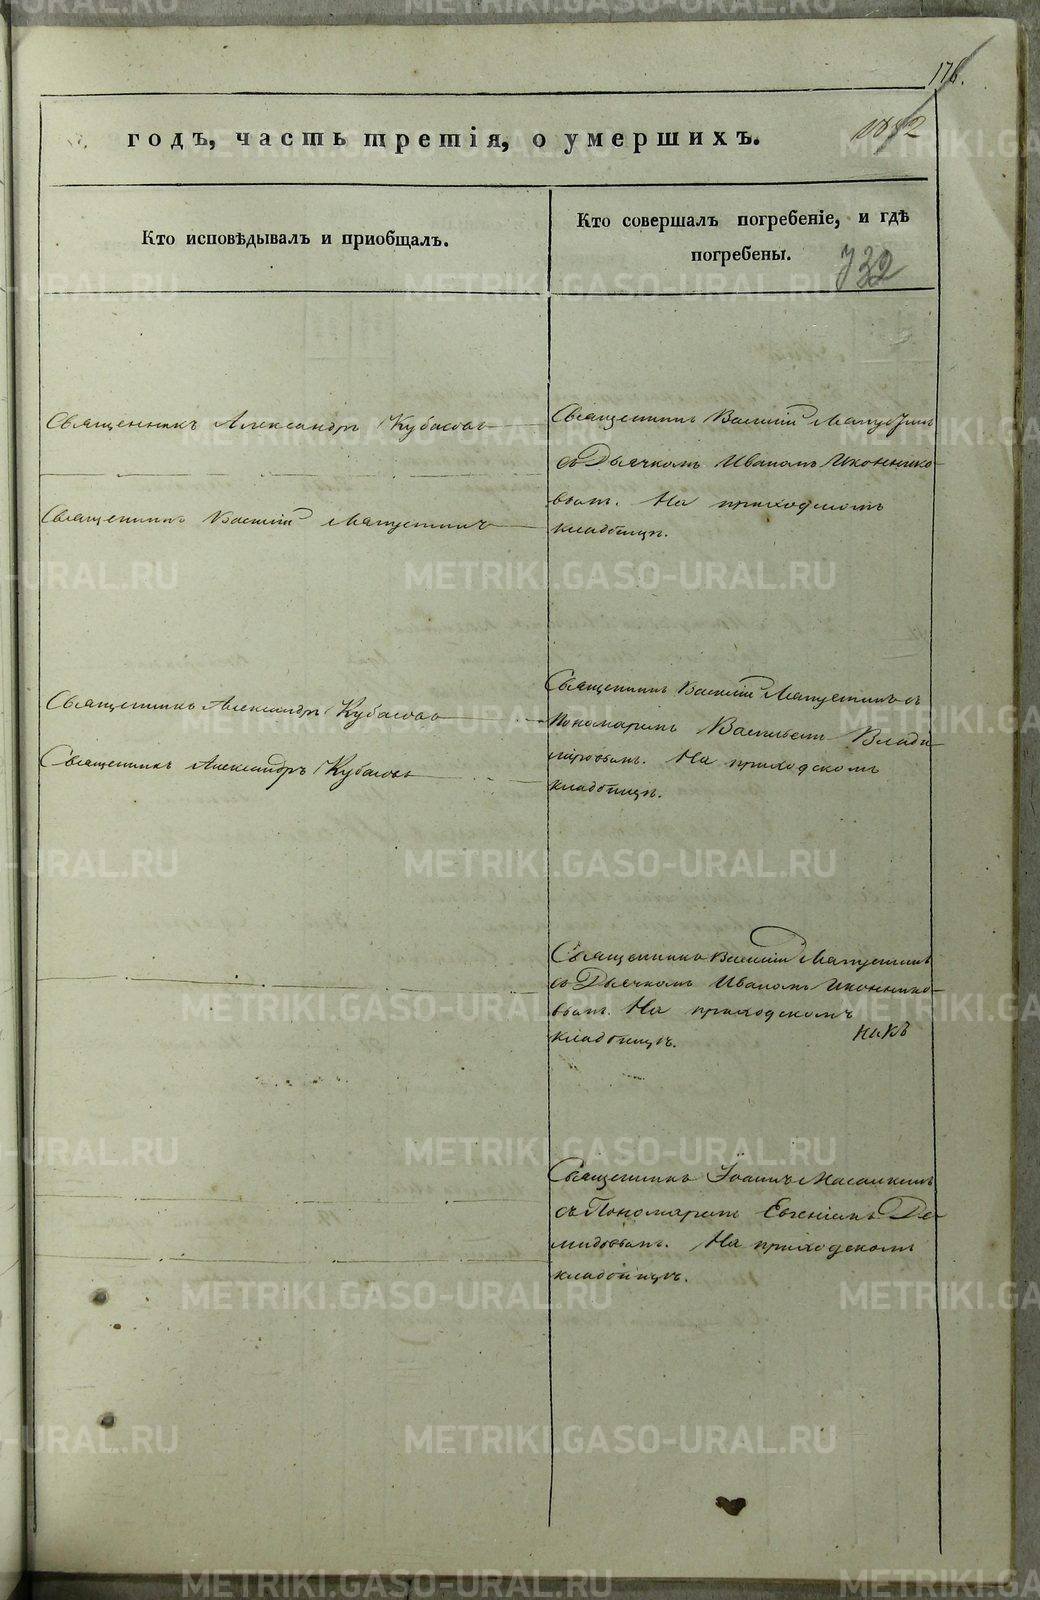 176.
годъ, часть третія, о умершихъ.
1852
Кто исповѣдывалъ и приобщалъ.
Кто совершалъ погребеніе, и гдѣ
погребены.
732
Священникъ Александръ Кубасовъ
Священникъ Василій
съ Дьячкомъ Иваномъ Иконнико-
вымъ. На приходскомъ
кладбищѣ.
Священникъ Василій
Священникъ Василій
Священникъ Александръ Кубасовъ
Пономаремъ Василіемъ Влади-
міровымъ. На приходскомъ
Священникъ Александръ Кубасовъ
кладбищѣ.
Священникъ Василій
съ Дьячкомъ Иваномъ Иконнико-
вымъ. На приходскомъ
кладбищѣ.
Священникъ Іоаннъ
съ Пономаремъ Евгеніемъ Де-
мидовымъ. На приходскомъ
кладбищѣ.
METRIKI.GASO-URAL.RU